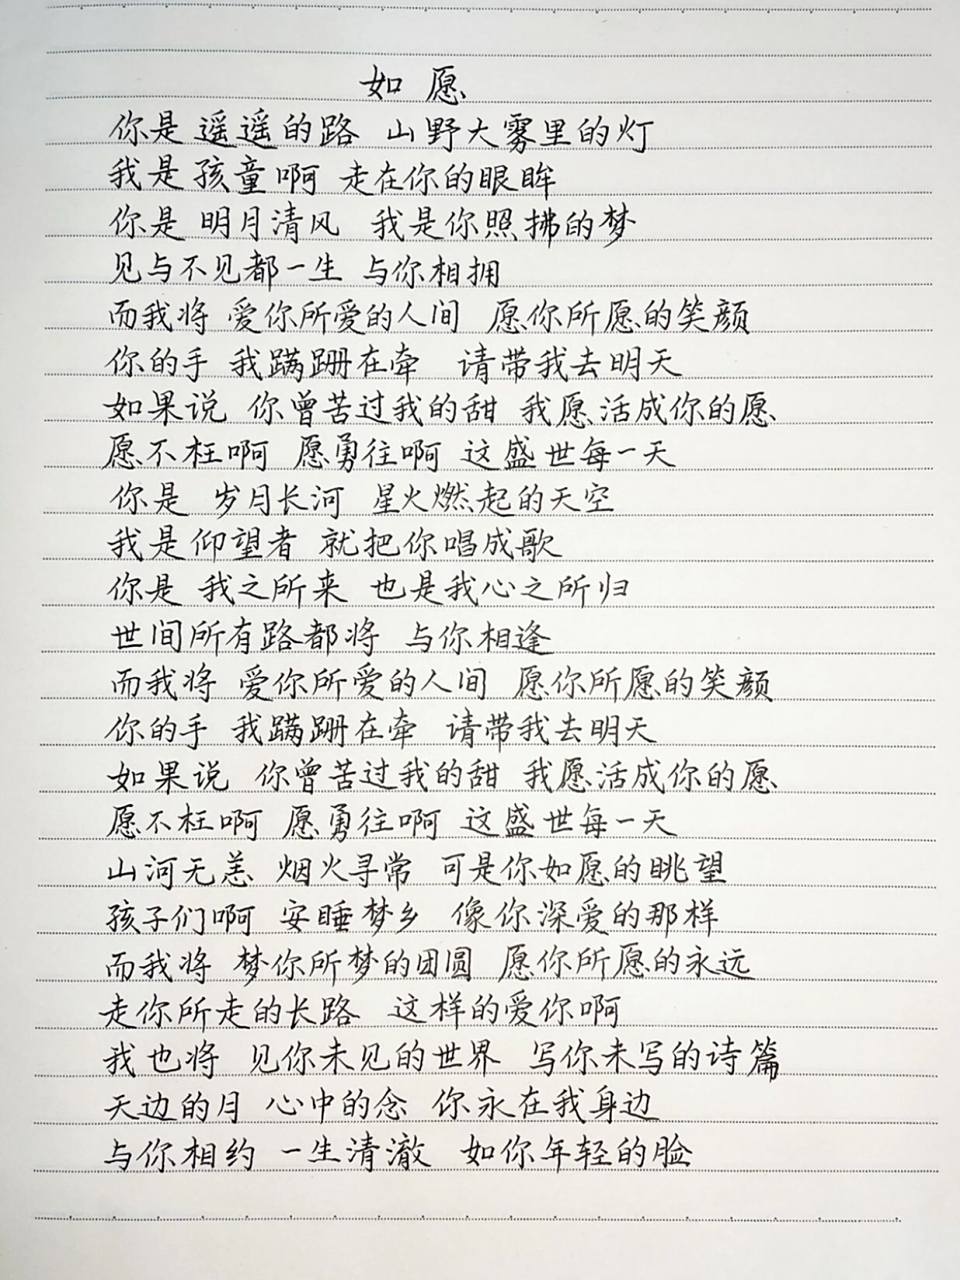 如 愿
你是 遥遥的路 山野大雾里的灯
我是孩童啊 走在你的眼眸
你是 明月清风 我是你照拂的梦
见与不见都一生 与你相拥
而我将 爱你所爱的人间 愿你所愿的笑颜
你的手 我蹒跚在牵 请带我去明天
如果说 你曾苦过我的甜 我愿活成你的愿
愿不枉啊 愿勇往啊 这盛世每一天
你是 岁月长河 星火燃起的天空
我是仰望者 就把你唱成歌
你是 我之所来 也是我心之所归
世间所有路都将 与你相逢
而我将 爱你所爱的人间 愿你所愿的笑颜
你的手 我蹒跚在牵 请带我去明天
如果说 你曾苦过我的甜 我愿活成你的愿
愿不枉啊 愿勇往啊 这盛世每一天
山河无恙 烟火寻常 可是你如愿的眺望
孩子们啊 安睡梦乡 像你深爱的那样
而我将 梦你所梦的团圆 愿你所愿的永远
走你所走的长路 这样的爱你啊
我也将 见你未见的世界 写你未写的诗篇
天边的月 心中的念 你永在我身边
与你相约 一生清澈 如你年轻的脸